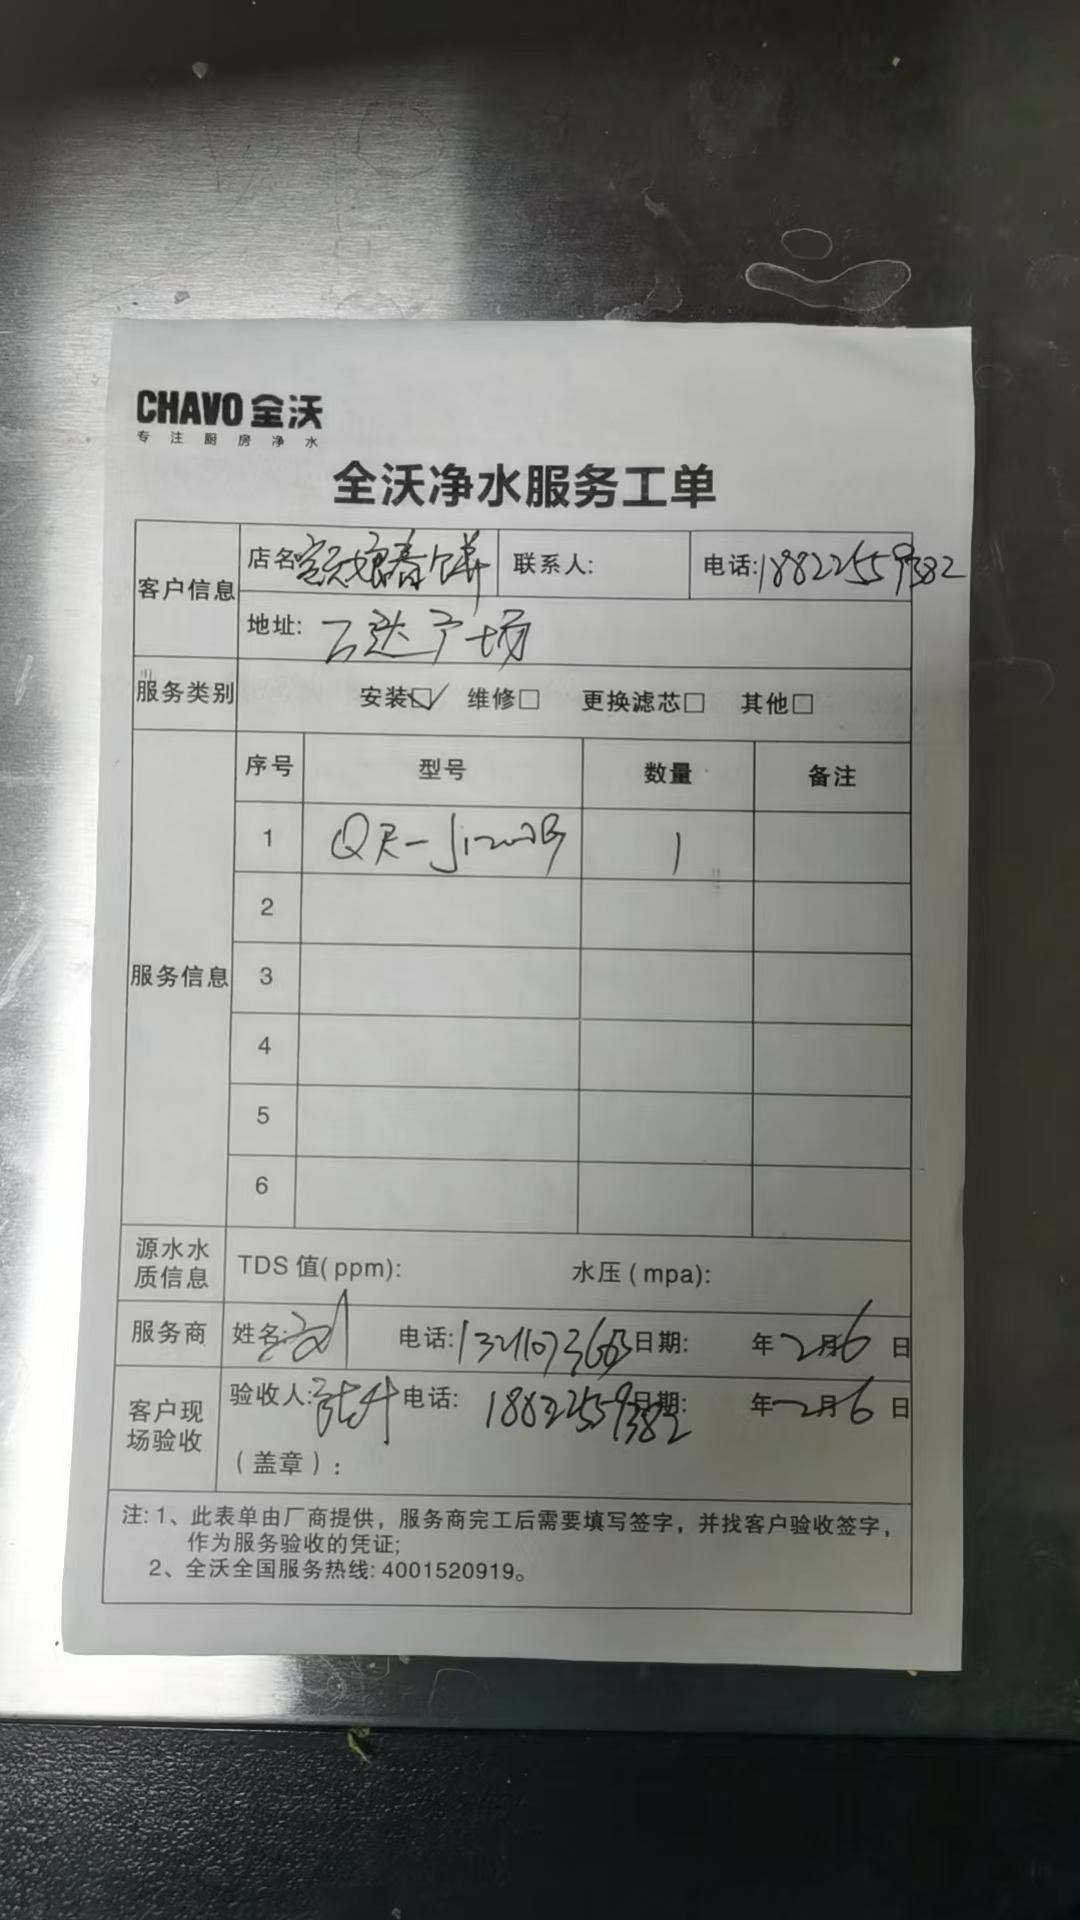 CHAVO 全沃
专注厨房净水
全沃净水服务工单
客户信息
店名 春饼 联系人: 电话:18822559382
地址: 万达广场
服务类别 安装☑ 维修□ 更换滤芯□ 其他□
服务信息
序号 型号 数量 备注
1 1
2
3
4
5
6
源水水质信息 TDS 值(ppm): 水压(mpa):
服务商 姓名:刘 电话: 日期: 年 2月6日
客户现场验收 验收人: 电话: 18822559382 日期: 年 2月6日
(盖章):
注: 1、此表单由厂商提供，服务商完工后需要填写签字，并找客户验收签字，
作为服务验收的凭证;
2、全沃全国服务热线: 4001520919。